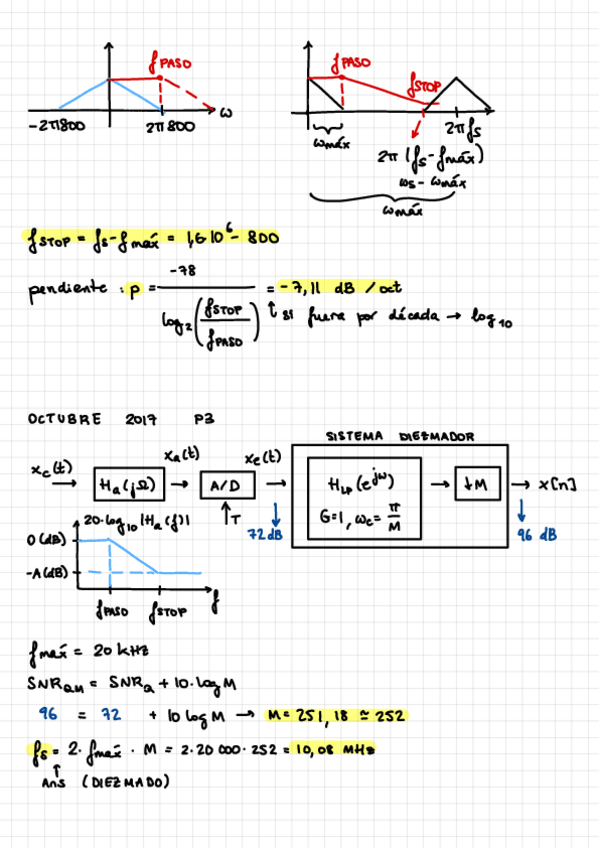 fPASO
ω
-2π800
2π800
fPASO
fSTOP
2πfs
ωmáx
2π (fs - fmáx)
ωs - ωmáx
ωmáx
fSTOP = fs - fmáx = 1,6·10⁶ - 800
pendiente : p = -78 / log₂(fSTOP / fPASO) = -7,11 dB / oct
↑ si fuera por década → log₁₀
OCTUBRE 2017 P3
SISTEMA DIEZMADOR
xc(t) → Ha(jΩ) → xa(t) → A/D → xe(t) → HLP(e^jω) → ↓M → x[n]
G=1, ωc = π/M
↑T
72 dB
96 dB
20·log₁₀ |Ha(f)|
0 (dB)
-A (dB)
fPASO
fSTOP
f
fmáx = 20 kHz
SNRQM = SNRQ + 10·log M
96 = 72 + 10 log M → M = 251,18 ≃ 252
fs = 2·fmáx·M = 2·20 000·252 = 10,08 MHz
↑
Ans (DIEZMADO)